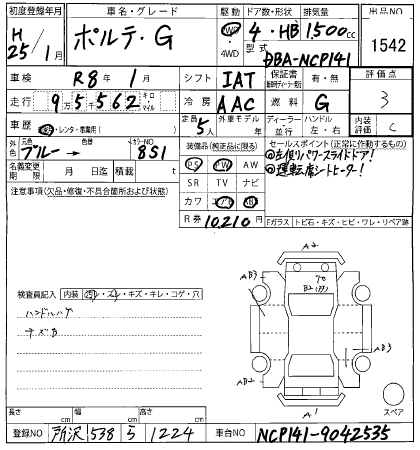 初度登録年月 車名・グレード 駆動 ドア数・形状 排気量 出品NO
H 25年 1月 ポルテ・G 2WD・4WD 4・HB 1,500cc 1542
型式 DBA-NCP141
車検 R8年 1月 シフト IAT 保証書 有・無 評価点
走行 95千562 キロ・マイル 冷房 AAC 燃料 G 3
車歴 自家・レンタ・事業用( ) 定員 5人 外車モデル 年 ディーラー 並行 ハンドル 左・右 内装評価 C
外色 元色 ブルー → 色替 カラーNO 8S1 装備品(純正品に限る) セールスポイント(正常に作動するもの)
名義変更期限 月 日迄 積載 t PS PW AW ◎左側リパワースライドドア!
注意事項(欠品・修復・不具合箇所および状態) SR TV ナビ ◎運転席シートヒーター!
カワ エアB
R券 10,210円 Fガラス トビ石・キズ・ヒビ・ワレ・リペア跡
A2
検査員記入 内装 キズ・キレ・コゲ・穴
AB3 B2
ハンドルハゲ
キズB
AB3
AB2
A1 スペア
長さ cm 幅 cm 高さ cm
登録NO 所沢 538 ら 1224 車台NO NCP141-9042535